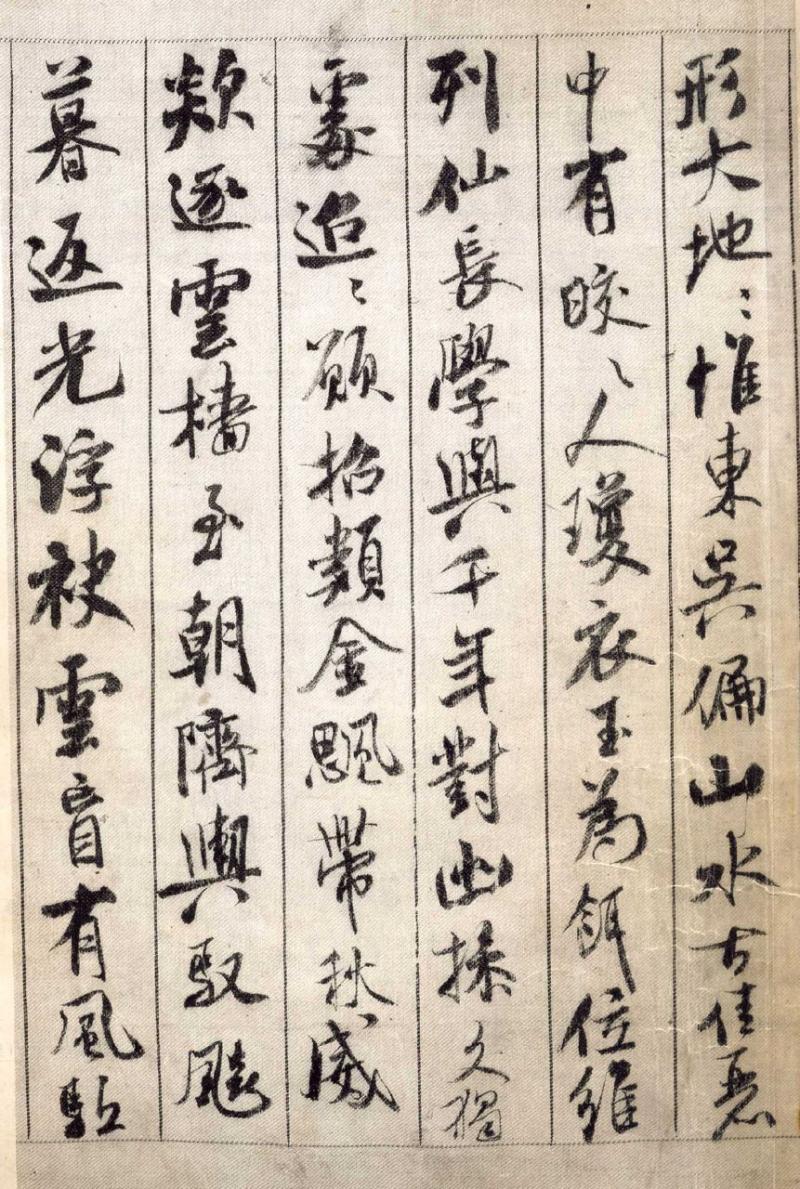 形大地〻惟東吳偏山水古佳麗
中有皎〻人瓊衣玉為餌位維
列仙長學與千年對幽操久獨
處迢〻願招類金颸帶秋威
欻逐雲檣至朝隮輿馭飆
暮返光浮袂雲盲有風駈